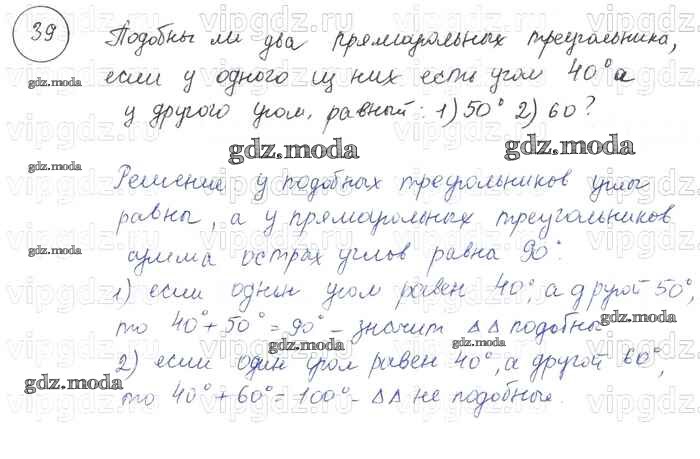 39
Подобны ли два прямоугольных треугольника,
если у одного из них есть угол 40° а
у другого угол, равный: 1) 50° 2) 60?
Решение у подобных треугольников углы
равны, а у прямоугольных треугольников
сумма острых углов равна 90°.
1) если один угол равен 40°, а другой 50°,
то 40° + 50° = 90° – значит ΔΔ подобны
2) если один угол равен 40°, а другой 60°,
то 40° + 60° = 100° – ΔΔ не подобны.
gdz.moda
gdz.moda
gdz.moda
gdz.moda
gdz.moda
gdz.moda
gdz.moda
gdz.moda
vipgdz.ru